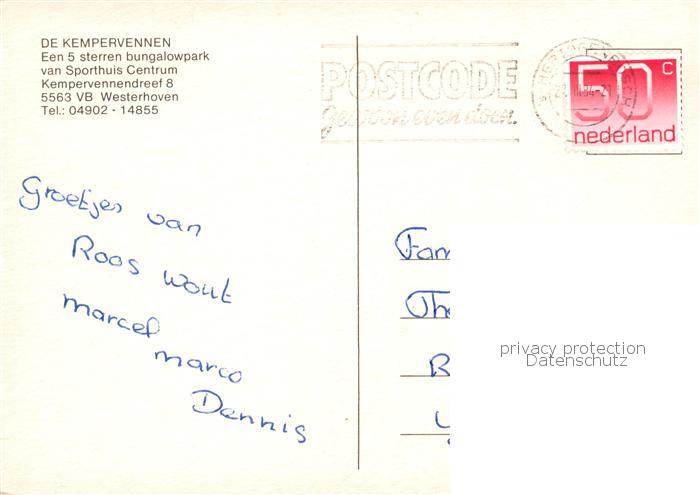 DE KEMPERVENNEN
Een 5 sterren bungalowpark
van Sporthuis Centrum
Kempervennendreef 8
5563 VB Westerhoven
Tel.: 04902 - 14855
POSTCODE
gewoon even doen.
50 C
nederland
Groetjes van
Roos Wout
Marcel
Marco
Dennis
Fam
privacy protection
Datenschutz